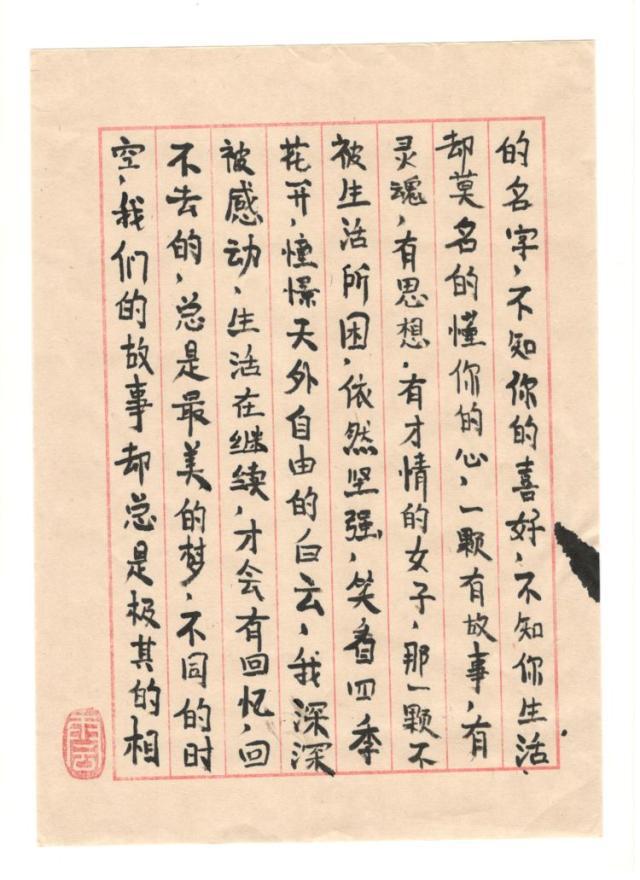 的名字，不知你的喜好，不知你生活，
却莫名的懂你的心，一颗有故事，有
灵魂，有思想，有才情的女子，那一颗不
被生活所困，依然坚强，笑看四季
花开，憧憬天外自由的白云，我深深
被感动，生活在继续，才会有回忆，回
不去的，总是最美的梦，不同的时
空，我们的故事却总是极其的相